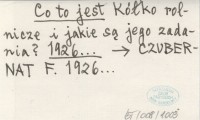 Co to jest Kółko rol-
nicze i jakie są jego zada-
nia? 1926... → CZUBER-
NAT F. 1926...